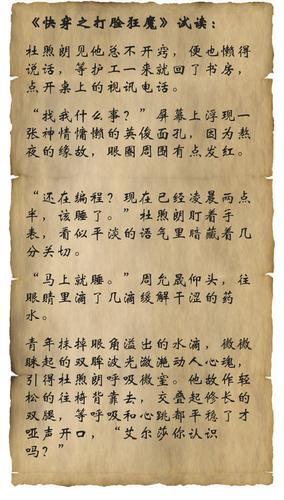 《快穿之打脸狂魔》试读：
杜煦朗见他总不开窍，便也懒得
说话，等护工一来就回了书房，
点开桌上的视讯电话。
“找我什么事？”屏幕上浮现一
张神情慵懒的英俊面孔，因为熬
夜的缘故，眼圈周围有点发红。
“还在编程？现在已经凌晨两点
半，该睡了。”杜煦朗盯着手
表，看似平淡的语气里暗藏着几
分关切。
“马上就睡。”周允晟仰头，往
眼睛里滴了几滴缓解干涩的药
水。
青年抹掉眼角溢出的水滴，微微
眯起的双眸波光潋滟动人心魂，
引得杜煦朗呼吸微窒。他故作轻
松的往椅背靠去，交叠起修长的
双腿，等呼吸和心跳都平稳了才
哑声开口，“艾尔莎你认识
吗？”